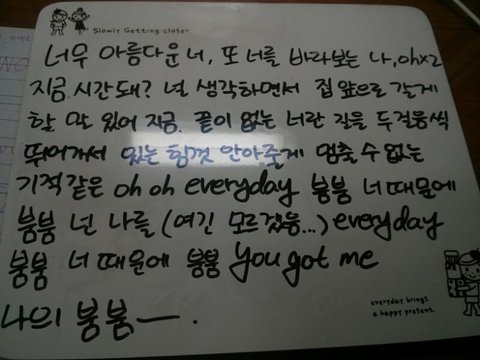 Slowly Getting closer
너무 아름다운 너, 또 너를 바라보는 나, ohx2
지금 시간돼? 널 생각하면서 집 앞으로 갈게
할 말 있어 지금. 끝이 없는 너란 길을 두걸음씩
뛰어가서 있는 힘껏 안아줄게 멈출 수 없는
기적같은 oh oh everyday 붕붕 너 때문에
붕붕 넌 나를 (여긴 모르겠웅...) everyday
붕붕 너 때문에 붕붕 you got me
나의 붕붕ㅡ.
everyday brings
a happy present.